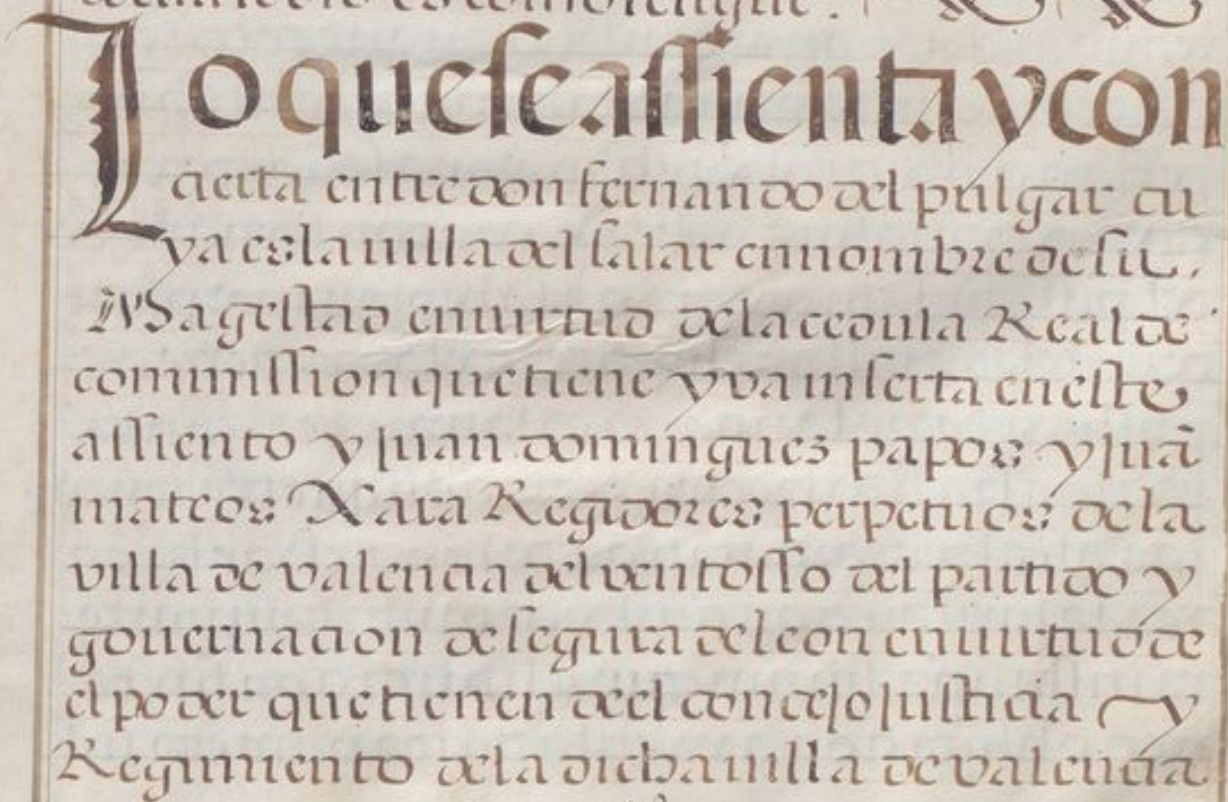 Lo que se assienta y con
cierta entre don fernando del pulgar cu
ya es la uilla del salar en nombre de su
Magestad en uirtud de la cedula Real de
commission que tiene y va inserta en este
assiento y Juan domingues papos y Juā
mateos Xara Regidores perpetuos de la
villa de valencia del ventosso del partido y
gouernacion de segura de leon en uirtud de
el poder que tienen de el concejo Justicia y
Regimiento de la dicha uilla de valencia